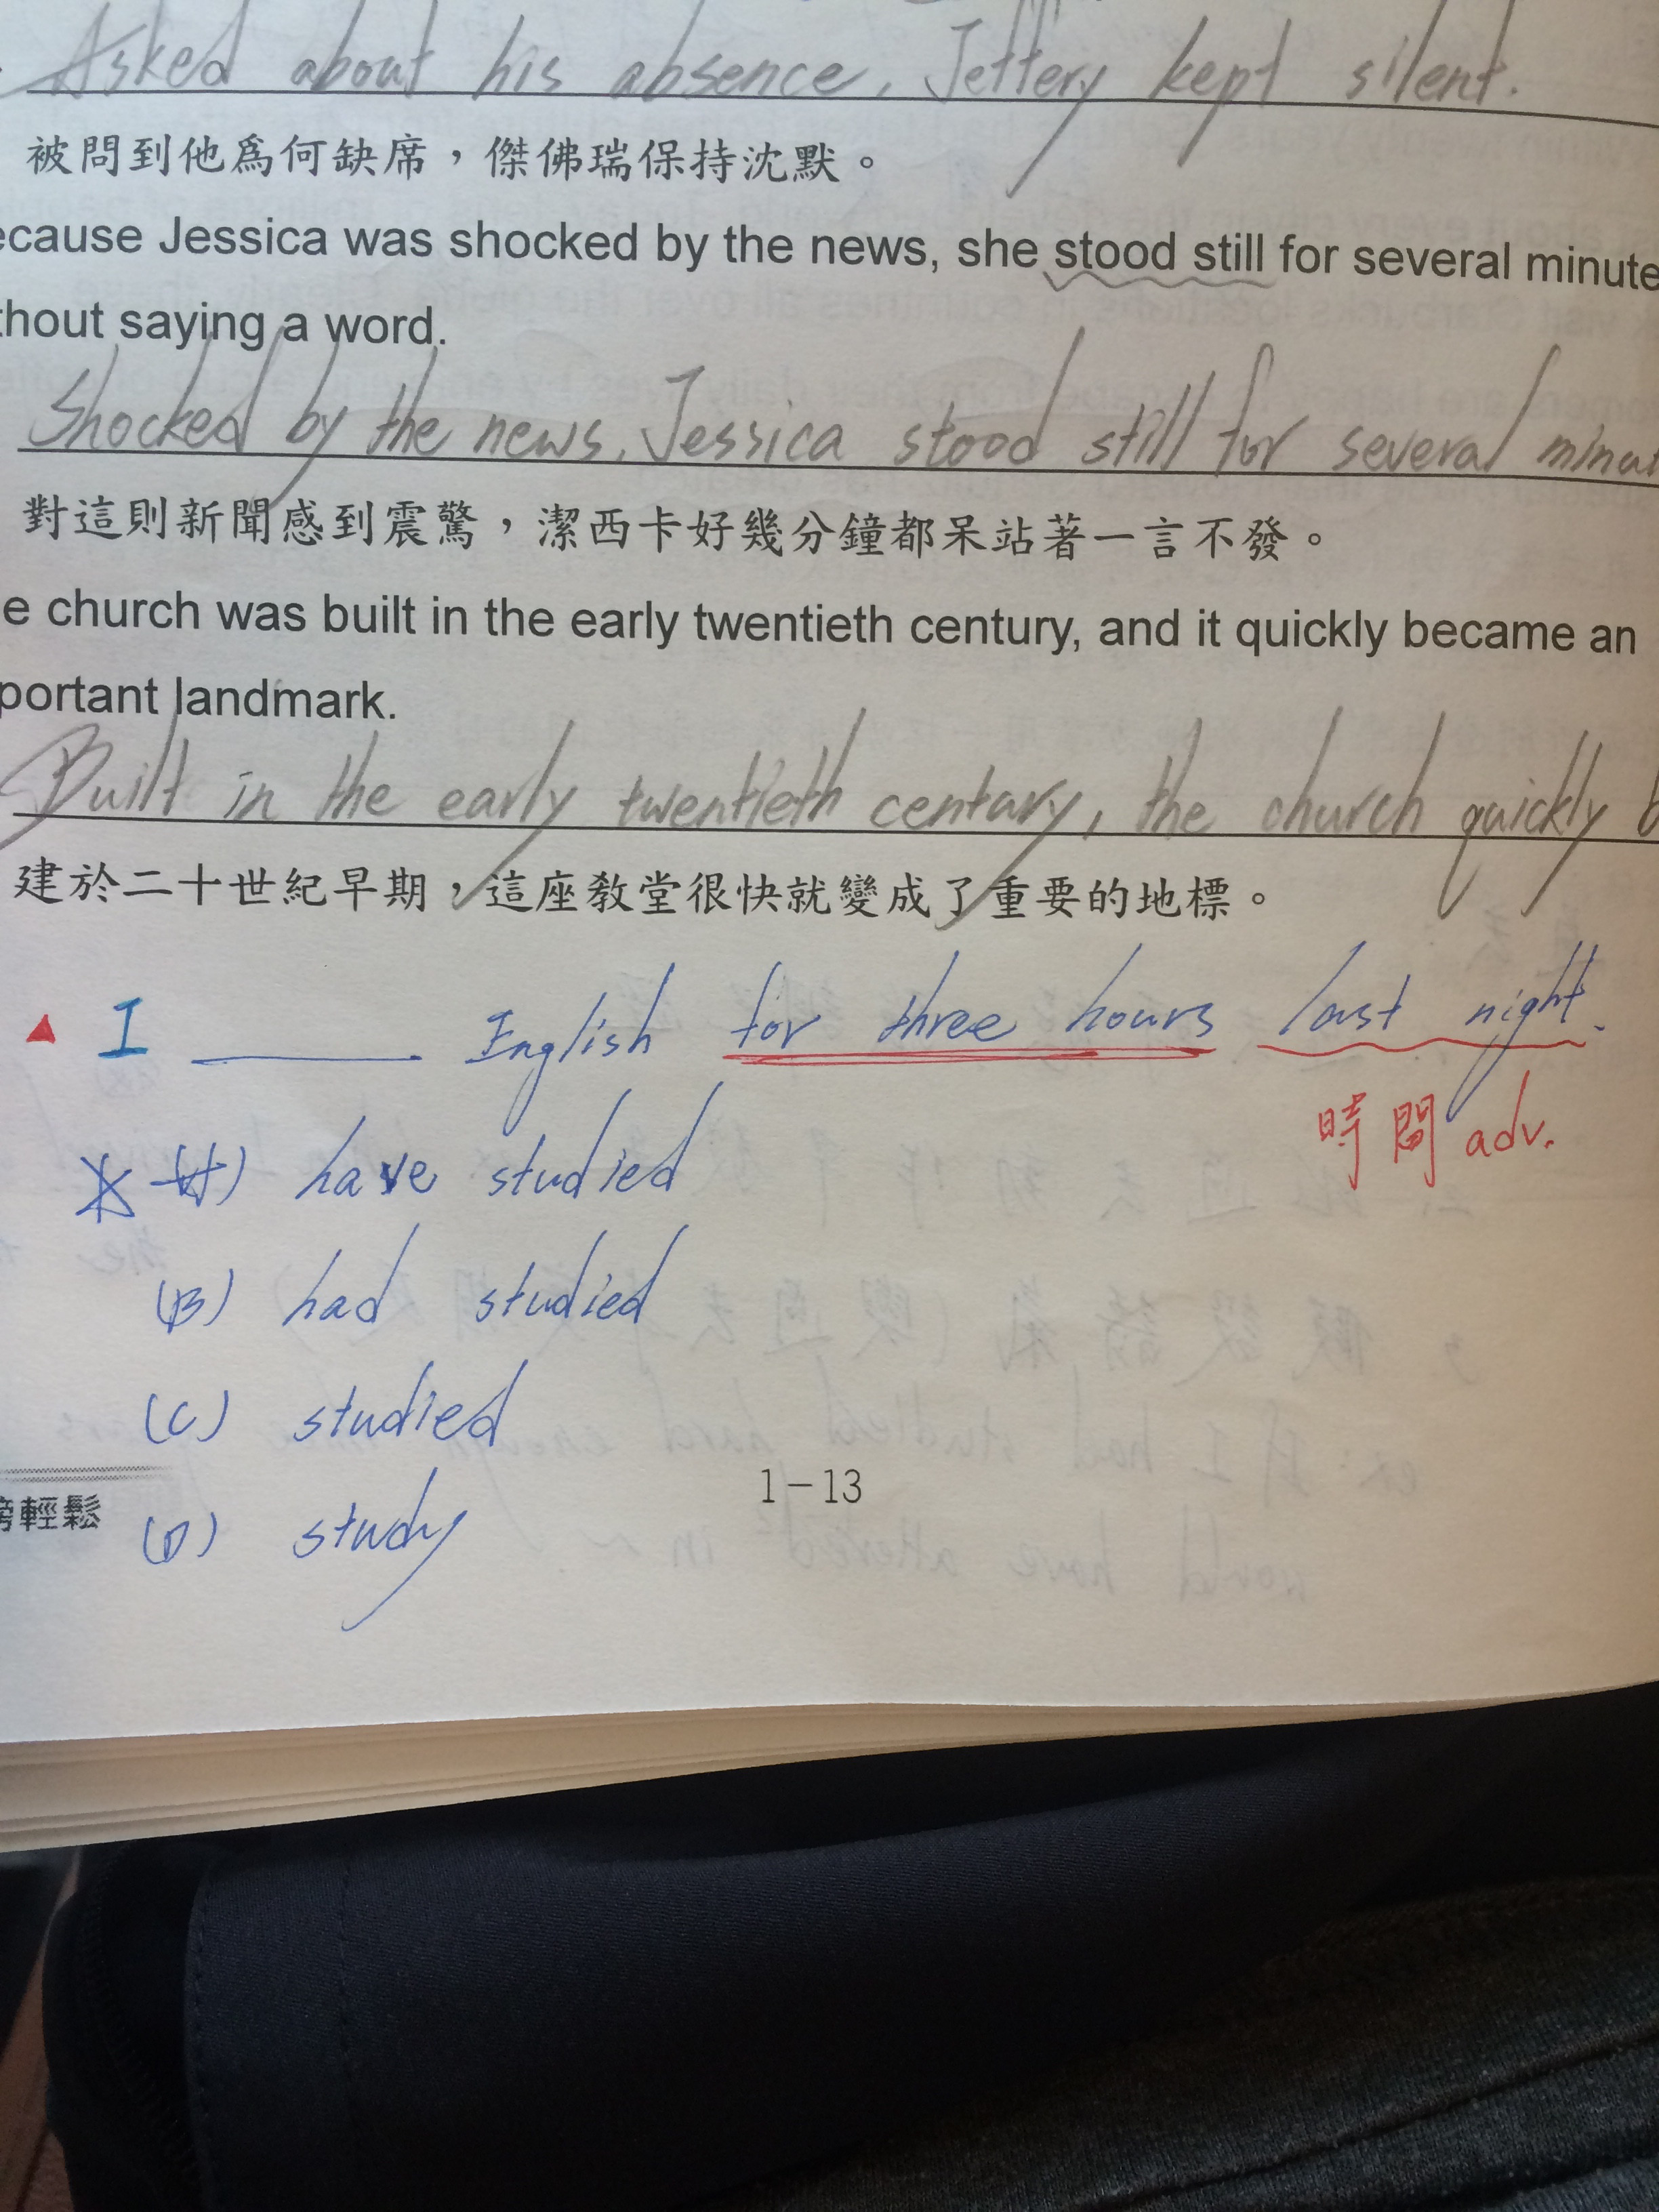 Asked about his absence, Jeffery kept silent.
被問到他為何缺席，傑佛瑞保持沈默。
ecause Jessica was shocked by the news, she stood still for several minute
thout saying a word.
Shocked by the news, Jessica stood still for several minut
對這則新聞感到震驚，潔西卡好幾分鐘都呆站著一言不發。
e church was built in the early twentieth century, and it quickly became an
portant landmark.
Built in the early twentieth century, the church quickly b
建於二十世紀早期，這座教堂很快就變成了重要的地標。
▲ I ________ English for three hours last night.
時間 adv.
(A) have studied
(B) had studied
(C) studied
(D) study
1-13
榜輕鬆